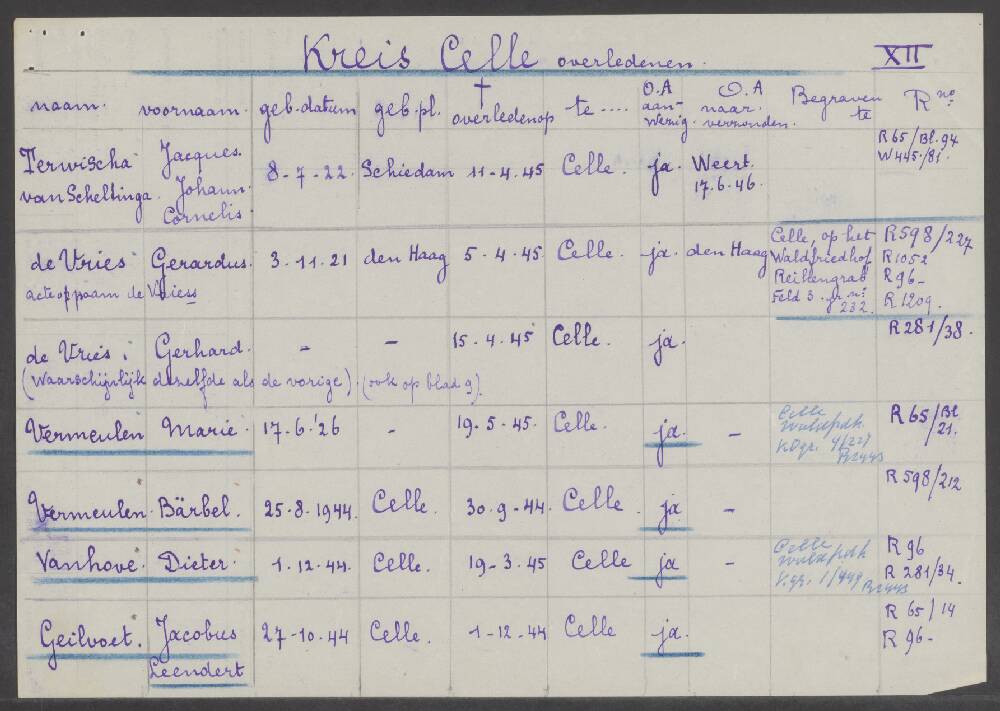 Kreis Celle overledenen. XII
naam. voornaam. geb. datum geb. pl. † overleden op te .... O.A aan- wezig. O.A naar. verzonden. Begraven te R no.
Terwischa van Scheltinga. Jacques. Johann Cornelis 8-7-22. Schiedam 11-4.45 Celle. ja. Weert. 17.6.46. R65/Bl.94 W445/81.
de Vries Gerardus. 3.11.21 den Haag 5-4.45. Celle. ja. den Haag Celle, op het Waldfriedhof Reihengrab Feld 3. gr. nr. 232. R598/227 R1052 R96- R1209.
acte op naam de Vriess
de Vries; Gerhard. - - 15.4.45 Celle. ja. R281/38.
(Waarschijnlijk dezelfde als de vorige) (ook op blad 9).
Vermeulen Marie. 17-6.'26 - 19.5-45. Celle. ja. - Celle R65/Bl 21.
Vermeulen. Bärbel. 25-8.1944. Celle. 30-9-44. Celle. ja - R598/212
Vanhove. Dieter. 1.12.44. Celle. 19-3.45 Celle ja - Celle R96 R281/34.
Geilvoet. Jacobus Leendert 27-10.44 Celle. 1-12-44 Celle ja. R65/14 R96-